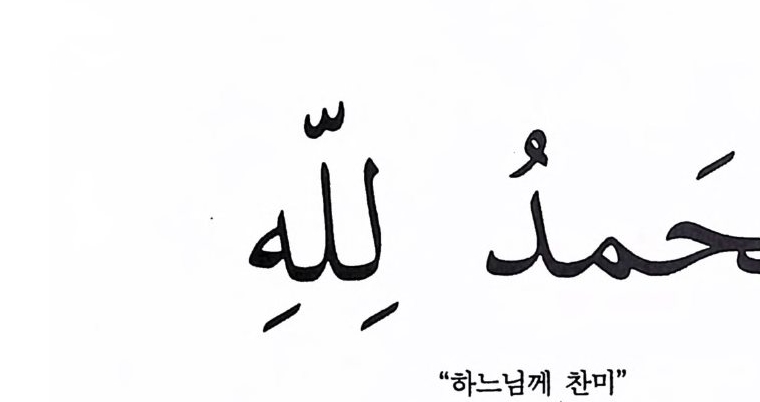 حَمدُ لِلّهِ
“하느님께 찬미”